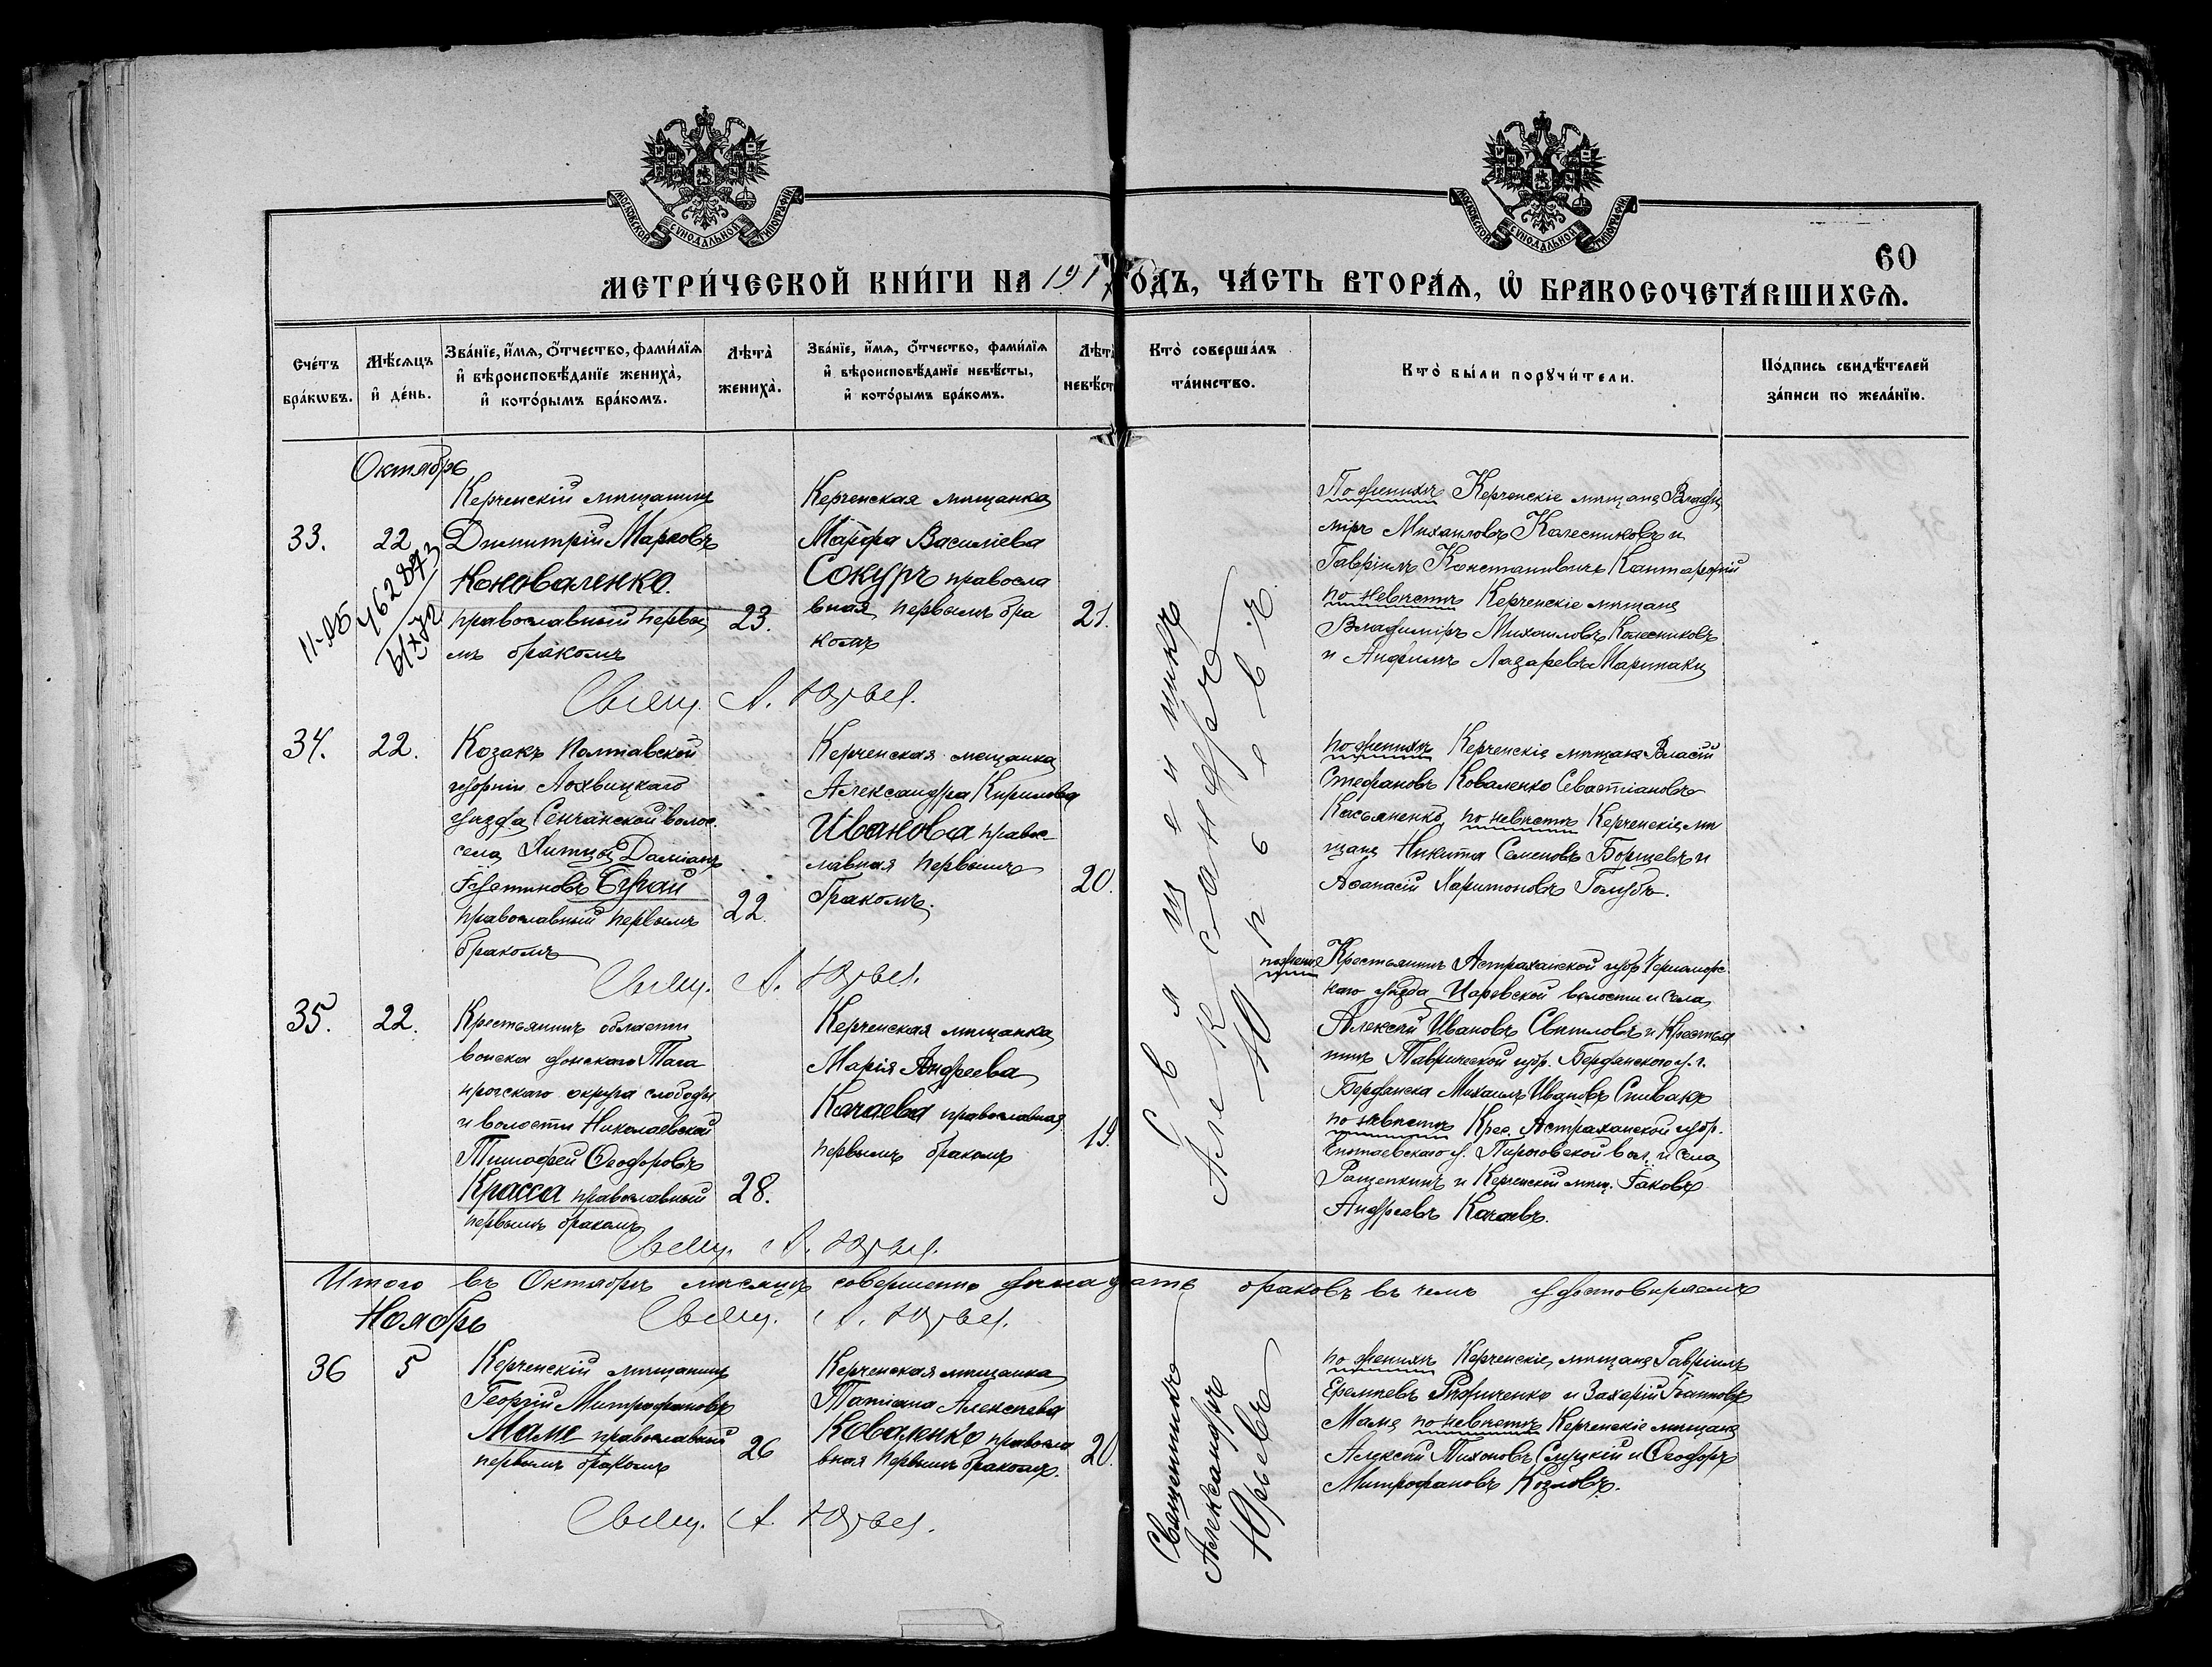 МОСКОВСКОЙ СУНОДАЛЬНОЙ ТИПОГРАФІИ
МОСКОВСКОЙ СУНОДАЛЬНОЙ ТИПОГРАФІИ
60
МЕТРИ́ЧЕСКОЙ КНИ́ГИ НА 191 ГОДЪ, ЧА́СТЬ ВТОРА́Я, Ѡ҆ БРАКОСОЧЕТА́ВШИХСЯ.
Сче́тъ
бра́кѡвъ.
Мѣ́сяцъ
и҆ де́нь.
Зва́нїе, и҆́мя, ѻ҆́тчество, фами́лїя
и҆ вѣроисповѣ́данїе жениха̀,
и҆ кото́рымъ бра́комъ.
Лѣта̀
жениха̀.
Зва́нїе, и҆́мя, ѻ҆́тчество, фами́лїя
и҆ вѣроисповѣ́данїе невѣ́сты,
и҆ кото́рымъ бра́комъ.
Лѣта
невѣст
Кто̀ соверша́лъ
та́инство.
Кто̀ бы́ли порꙋчи́тели.
По́дпись свидѣ́телей
за́писи по жела́нїю.
Октябрь
33.
22
11-ЯБ 462873
Керченскій мѣщанинъ
Димитрій Марковъ
Коноваленко.
православный первы
мъ бракомъ
23.
Керченская мѣщанка
Марфа Василіева
Сокуръ правосла
вная, первымъ бра
комъ
21.
По женихѣ Керченскіе мѣщане Влади
міръ Михаиловъ Колесниковъ и
Гавріилъ Константиновъ
по невѣстѣ Керченскіе мѣщане
Владиміръ Михаиловъ Колесниковъ
и Анфимъ Лазаревъ Маринаки
Свящ. А. Юрьев.
34.
22.
Козакъ Полтавской
губерніи Лохвицкаго
уѣзда Сенчанской волос.
села Хитцовъ Даміанъ
Іустиновъ Бугай
православный первымъ
бракомъ
22.
Керченская мещанка
Александра Кирилова
Иванова правос-
лавная первымъ
бракомъ.
20.
по женихѣ Керченскіе мѣщане Власій
Стефановъ Коваленко Севастіановъ
Касьяненко, по невѣстѣ Керченскіе мѣ
щане Никита Семеновъ Борщевъ и
Аѳанасій Харитоновъ Голубъ.
Свящ. А. Юрьев.
35.
22.
Крестьянинъ области
войска донскаго Тага
нрогскаго округа слободы
и волости Николаевской
Тимофей Ѳеодоровъ
Красса православный
первымъ бракомъ
28.
Керченская мѣщанка
Марія Андреева
Качаева православная
первымъ бракомъ
19.
по жених Крестьянинъ Астраханской губ. Черноморс
каго уѣзда Царевской волости и села
Алексѣй Ивановъ Свѣтловъ и Крестья
нинъ Таврической губ. Бердянского у. г.
Бердянска Михаилъ Ивановъ Спивакъ
по невѣстѣ Крес. Астраханской губр.
Енотаевскаго у. Пироговской вол. и села
Ращепкинъ и Керченскій мѣщ. Іаковъ
Андреевъ Качаевъ.
Свящ. А. Юрьев.
Священникъ
Александръ
Юрьевъ
Итого въ Октябрѣ мѣсяцѣ совершенно двѣнадцать браковъ въ чемъ удостовѣряемъ
Свящ. А. Юрьев.
Ноябрь
36
5
Керченскій мѣщанинъ
Георгій Митрофановъ
Маме православный
первымъ бракомъ
26
Керченская мѣщанка
Татіана Алексѣева
Коваленко правосла
вная первымъ бракомъ.
20.
по женихѣ Керченскіе мѣщане Гавріилъ
Еремѣевъ Рудиченко и Захарій Іоанновъ
Маме по невѣстѣ Керченскіе мѣщане
Алексѣй Тихоновъ Слуцкій и Ѳеодоръ
Митрофановъ Козловъ.
Свящ. А. Юрьев.
Священникъ
Александръ
Юрьевъ